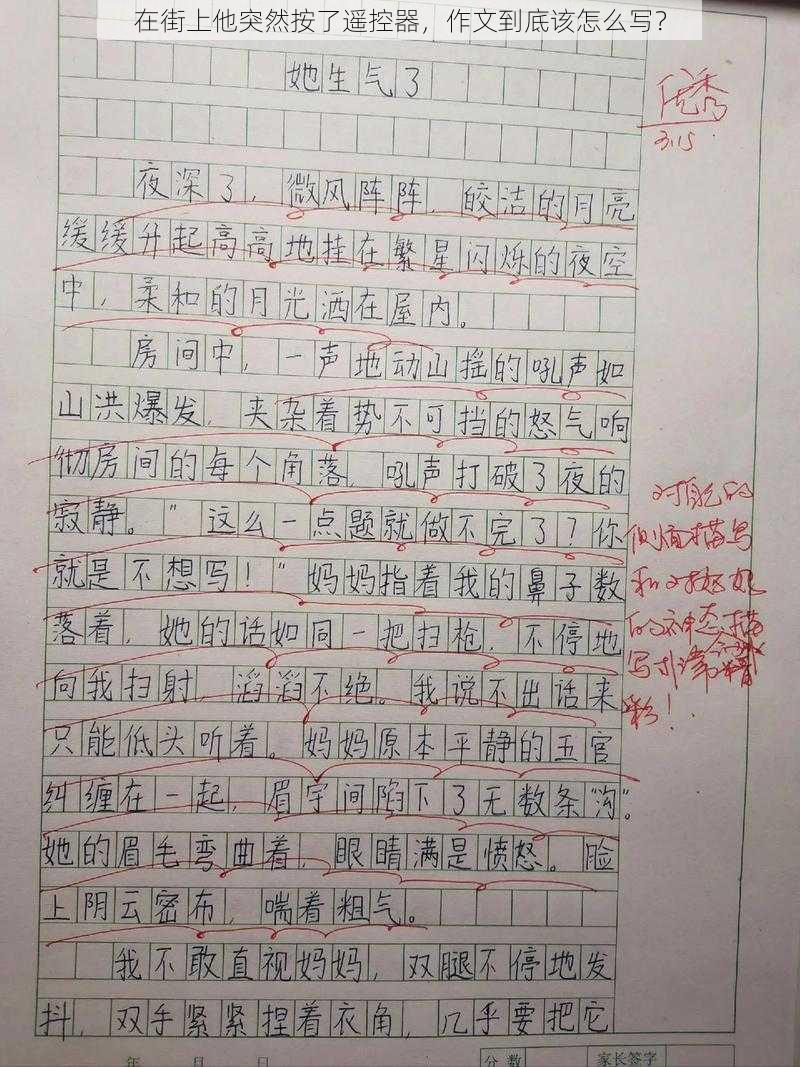 在街上他突然按了遥控器，作文到底该怎么写？
她生气了
优秀
3.15
夜深了，微风阵阵，皎洁的月亮
缓缓升起高高地挂在繁星闪烁的夜空
中，柔和的月光洒在屋内。
房间中，一声地动山摇的吼声如
山洪爆发，夹杂着势不可挡的怒气响
彻房间的每个角落，吼声打破了夜的
寂静。"这么一点题就做不完了？你
就是不想写！"妈妈指着我的鼻子数
落着，她的话如同一把扫枪，不停地
向我扫射，滔滔不绝。我说不出话来
只能低头听着。妈妈原本平静的五官
纠缠在一起，眉宇间陷下了无数条"沟"。
她的眉毛弯曲着，眼睛满是愤怒。脸
上阴云密布，喘着粗气。
我不敢直视妈妈，双腿不停地发
抖，双手紧紧捏着衣角，几乎要把它
对自己的
侧面描写
和对妈妈
的神态描
写非常精
彩！
年 月 日
分数
家长签字